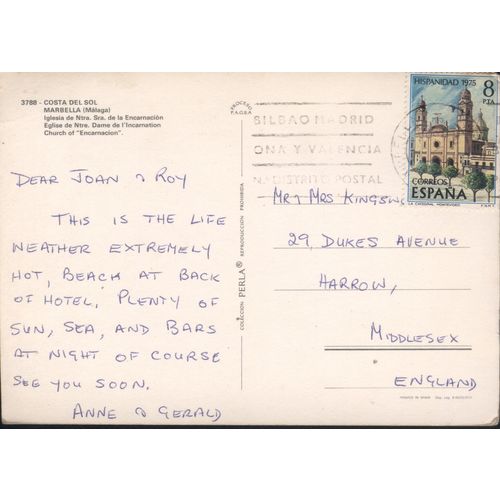 3788 - COSTA DEL SOL
MARBELLA (Málaga)
Iglesia de Ntra. Sra. de la Encarnación
Eglise de Ntre. Dame de l'Incarnation
Church of "Encarnacion".
DEAR JOAN & ROY
THIS IS THE LIFE
WEATHER EXTREMELY
HOT, BEACH AT BACK
OF HOTEL, PLENTY OF
SUN, SEA, AND BARS
AT NIGHT OF COURSE
SEE YOU SOON.
ANNE & GERALD
COLECCION PERLA® REPRODUCCION PROHIBIDA
BILBAO MADRID
ONA Y VALENCIA
DISTRITO POSTAL
HISPANIDAD 1975
8
PTA
CORREOS
ESPAÑA
MR & MRS KINGSW
29, DUKES AVENUE
HARROW,
MIDDLESEX
ENGLAND